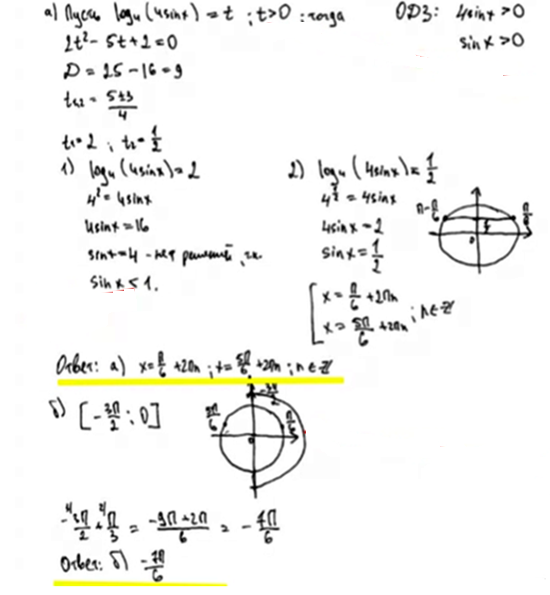 а) Пусть log₄(4sinx) = t ; t>0 : тогда ОДЗ: 4sinx >0
2t² - 5t + 2 = 0 sinx >0
D = 25 - 16 = 9
t₁,₂ = (5±3)/4
t₁ = 2 ; t₂ = 1/2
1) log₄(4sinx) = 2
4² = 4sinx
4sinx = 16
sinx = 4 - нет решений, т.к.
sinx < 1.
2) log₄(4sinx) = 1/2
4^(1/2) = 4sinx
4sinx = 2
sinx = 1/2
π - π/6 π/6
0
[ x = π/6 + 2πn
x = 5π/6 + 2πn ; n ∈ Z
Ответ: а) x = π/6 + 2πn ; x = 5π/6 + 2πn ; n ∈ Z
б) [-3π/2 ; 0]
-3π/2
5π/6 π/6
0
-3π/2 + π/3 = (-9π+2π)/6 = -7π/6
Ответ: б) -7π/6